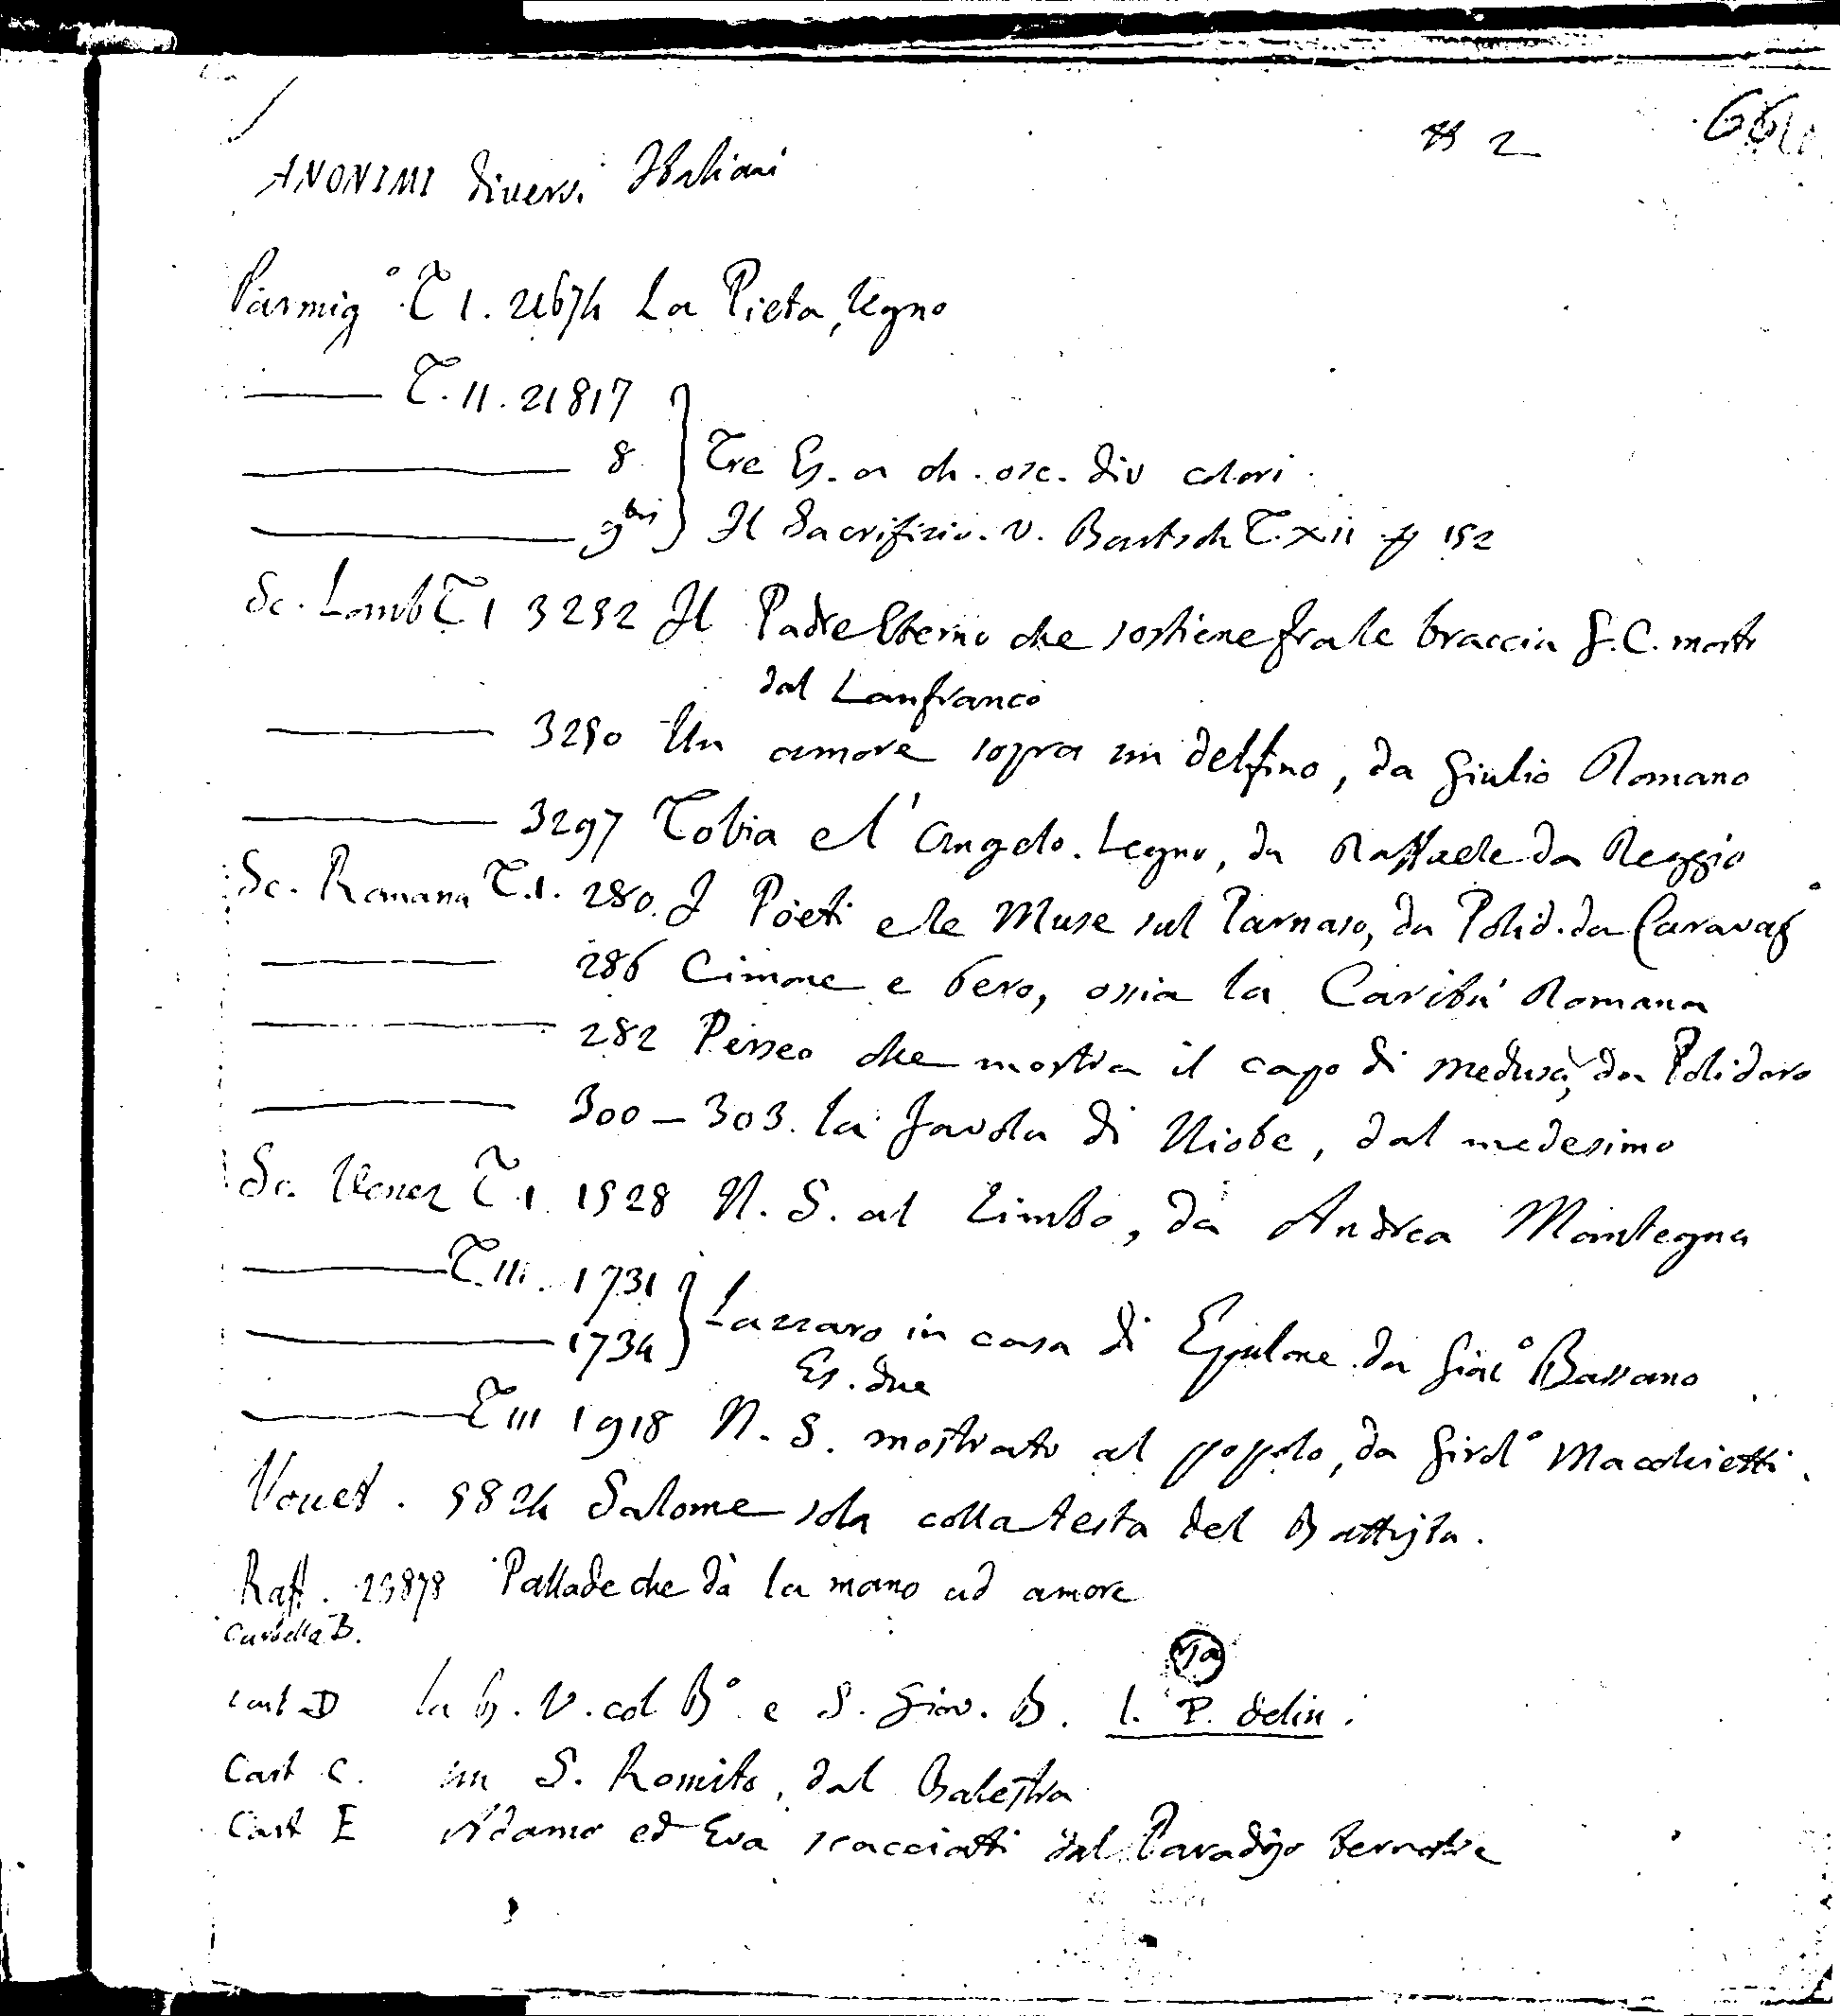 # 2
66
ANONIMI diversi Italiani
Parmig.° T 1. 21674 La Pieta, legno
T. II. 21817
8 } Tre Es. a ch. osc. div colori
9bis } Il Sacrifizio. V. Bartsch T. XII p 152
Sc. Lomb T. 1 3252 Il Padre Eterno che sostiene fra le braccia G. C. morto
dal Lanfranco
3250 Un amore sopra un delfino, da Giulio Romano
3297 Tobia e l' Angelo. Legno, da Raffaele da Reggio
Sc. Romana T. 1. 280. I Poeti e le Muse sul Parnaso, da Polid. da Caravag°
286 Cimone e Pero, ossia la Carità Romana
282 Perseo che mostra il capo di Medusa, da Polidoro
300 – 303. la favola di Niobe, dal medesimo
Sc. Venez T. 1. 1528 N. S. al Limbo, da Andrea Mantegna
T. III. 1731
1734 } Lazzaro in casa di Epulone da Giac° Bassano
Es. due
T III 1918 N. S. mostrato al popolo, da Girol° Macchietti.
Vouet. 5824 Salome sola colla testa del Battista.
Raff. 23878 Pallade che dà la mano ad amore
Cartella B.
Cart D la B. V. col B° e S. Giov. B. I. P. delin.
Cart C. un S. Romito, dal Balestra
Cart E Adamo ed Eva scacciati dal Paradiso terrestre